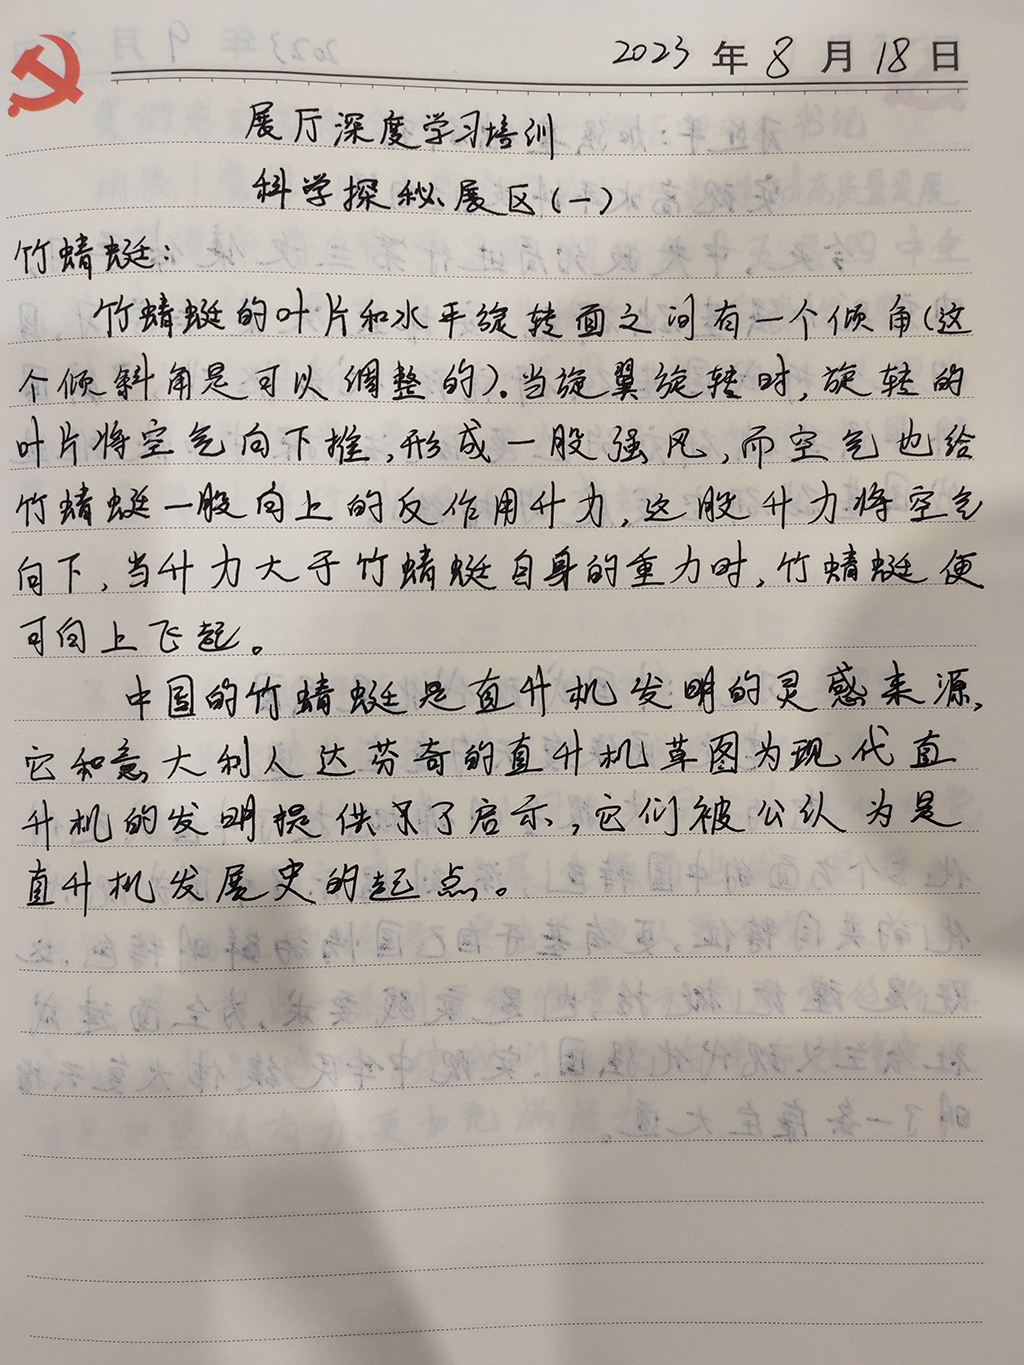 2023年8月18日
展厅深度学习培训
科学探秘展区(一)
竹蜻蜓:
竹蜻蜓的叶片和水平旋转面之间有一个倾角(这
个倾斜角是可以调整的)。当旋翼旋转时,旋转的
叶片将空气向下推,形成一股强风,而空气也给
竹蜻蜓一股向上的反作用升力,这股升力将空气
向下,当升力大于竹蜻蜓自身的重力时,竹蜻蜓便
可向上飞起。
中国的竹蜻蜓是直升机发明的灵感来源,
它和意大利人达芬奇的直升机草图为现代直
升机的发明提供了启示,它们被公认为是
直升机发展史的起点。